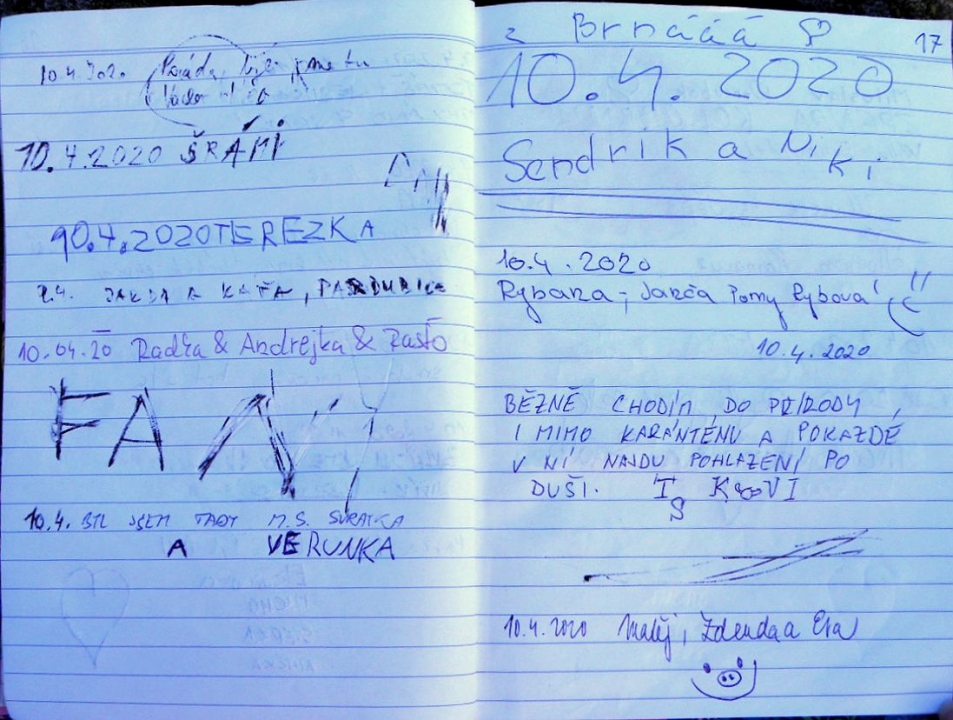 10.4.2020
10.4.2020 ŠRÁMI
10.4.2020 TEREZKA
JAKUB A KAŤA, PARDUBICE
10.04.20 Radka & Andrejka & Rasťo
FANY
10.4. BYL JSEM TADY M.S. SVRATKA
A VERUNKA
z Brnááá
17
10.4.2020
Sendrik a Niki
10.4.2020
Rybana - Jarča Pomy Rybová
10.4.2020
BĚŽNĚ CHODÍM DO PŘÍRODY,
I MIMO KARANTÉNU A POKAŽDÉ
V NÍ NAJDU POHLAZENÍ PO
DUŠI.
10.4.2020 Matěj, Zdenda a Eva